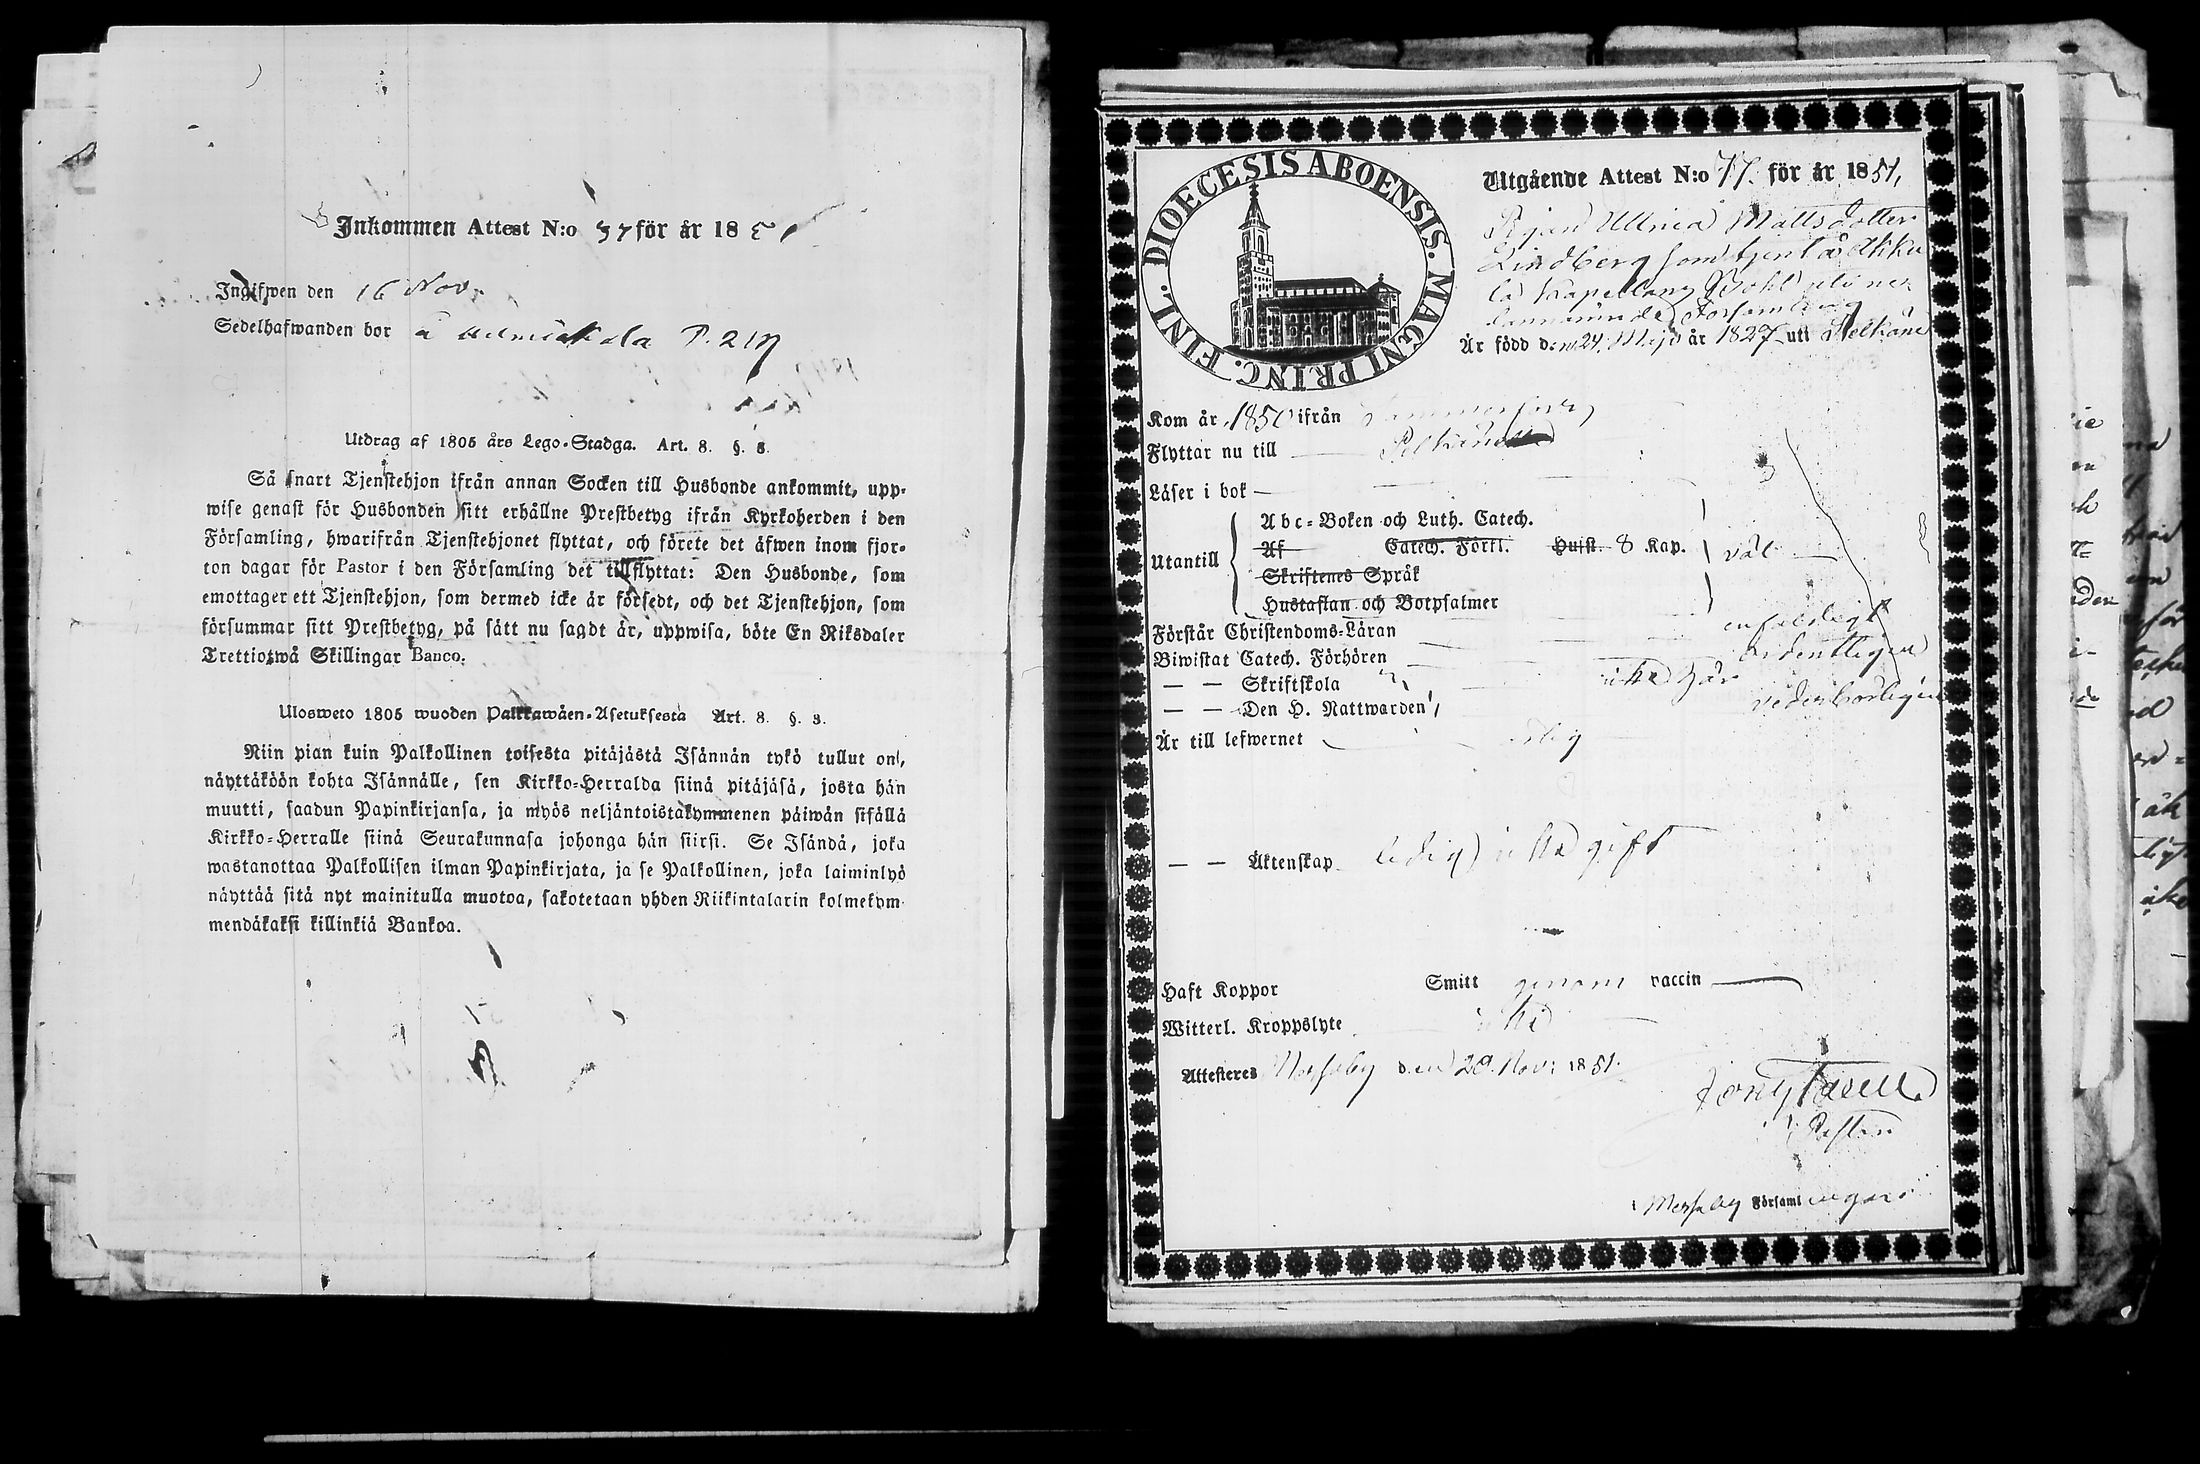 Inkommen Attest N:o 37 för år 1851
Ingifwen den 16 Nov.
Sedelhafwanden bor å P. 217
Utdrag af 1805 års Lego-Stadga. Art. 8. §. 8.
Så snart Tjenstehjon ifrån annan Socken till Husbonde ankommit, upp-
wise genast för Husbonden sitt erhållne Prestbetyg ifrån Kyrkoherden i den
Församling, hwarifrån Tjenstehjonet flyttat, och förete det äfwen inom fjor-
ton dagar för Pastor i den Församling det tillflyttat: Den Husbonde, som
emottager ett Tjenstehjon, som dermed icke är försedt, och det Tjenstehjon, som
försummar sitt Prestbetyg, på sätt nu sagdt är, uppwisa, böte En Riksdaler
Trettiotwå Skillingar Banco.
Ulosweto 1805 wuoden Palkkawäen-Asetuksesta Art. 8. §. 8.
Niin pian kuin Palkollinen toisesta pitäjästä Isännän tykö tullut on,
näyttäköön kohta Isännälle, sen Kirkko-Herralda siinä pitäjäsä, josta hän
muutti, saadun Papinkirjansa, ja myös neljäntoistakymmenen päiwän sisällä
Kirkko-Herralle siinä Seurakunnasa johonga hän siirsi. Se Isändä, joka
wastanottaa Palkollisen ilman Papinkirjata, ja se Palkollinen, joka laiminlyö
näyttää sitä nyt mainitulla muotoa, sakotetaan yhden Riikintalarin kolmekym
mendäkaksi killinkiä Bankoa.
DIOECESIS ABOENSIS. MAGNI PRINC. FINL.
Utgående Attest N:o 77. för år 1851,
Pigan Ullrica Mattsdotter
Lindberg som tjent å Akka
la Kapellans Bohl uti när
varande Församling
Är född den 24 Maji år 1827 uti Pelkäne
Kom år 1850 ifrån Tammerfors
Flyttar nu till Pelkäne
Läser i bok
Utantill
Abc-Boken och Luth. Catech.
Af Catech. Förkl. Husst. 8 Kap. väl
Skriftenes Språk
Hustaflan och Botpsalmer
Förstår Christendoms-Läran enfaldigt
Biwistat Catech. Förhören ordentligen
— — Skriftskola icke här
— — Den H. Nattwarden vederbörligen
Är till lefwernet ärlig
— — Äktenskap ledig icke gift
Haft Koppor Smitt genom vaccin
Witterl. Kroppslyte icke
Attesteres Messuby den 20. Nov. 1851.
Pastor
Messuby Församlingar